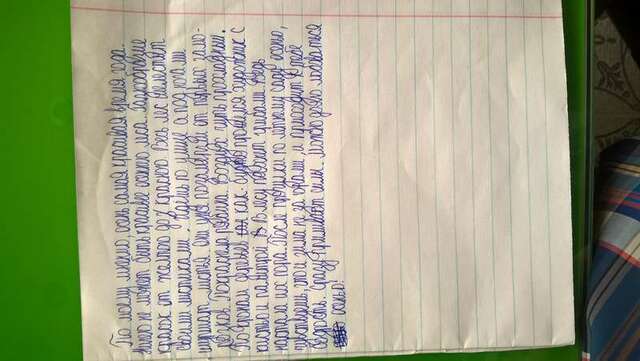 По моему мнению, осень самая красивая время года.
Ничего не может быть красивее осеннего леса. Разнообразие
красок от желтого до красного. Весь лес шелестит
своими листиками. Идешь по улице а под ногами
шуршат листья. Они уже позамерзли от первых замо-
розков. Покраснела рябина. Воздух чуть прохладный.
По кронам деревьев как-будто прошелся художник с
кистью и палитрой. В лесу пахнет грибами. Ведь
настала их пора. После прогулки по саду осенью,
чувствуешь, что и зима не за горами, и приходит к тебе
бодрость. Сразу приливают силы. Можно долго любоваться
осенью!